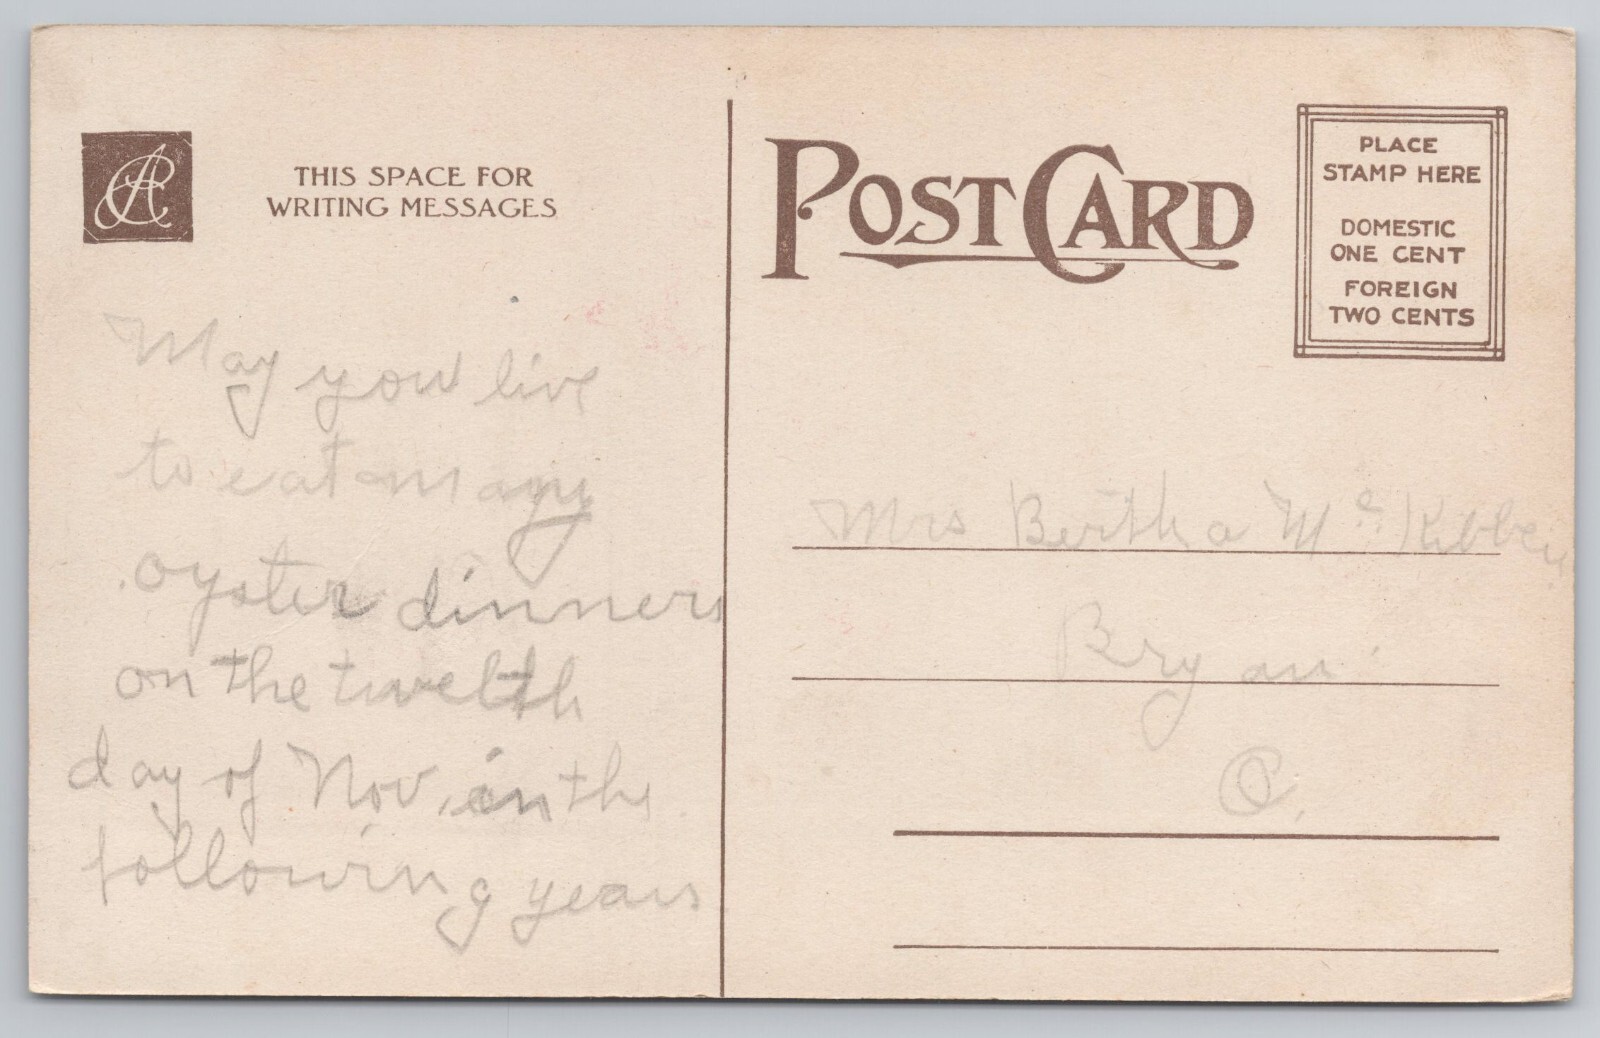 THIS SPACE FOR
WRITING MESSAGES
May you live
to eat many
oyster dinners
on the twelth
day of Nov. in the
following years
POST CARD
PLACE
STAMP HERE
DOMESTIC
ONE CENT
FOREIGN
TWO CENTS
Mrs Bertha Mc Kibben
Bryan
O.